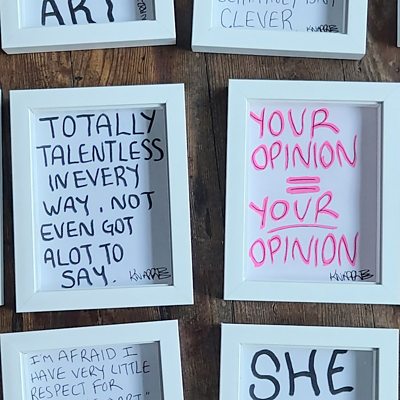 ART
CLEVER.
KNAPPLE
TOTALLY
TALENTLESS
IN EVERY
WAY. NOT
EVEN GOT
ALOT TO
SAY.
YOUR
OPINION
=
YOUR
OPINION
I'M AFRAID I
HAVE VERY LITTLE
RESPECT FOR
SHE